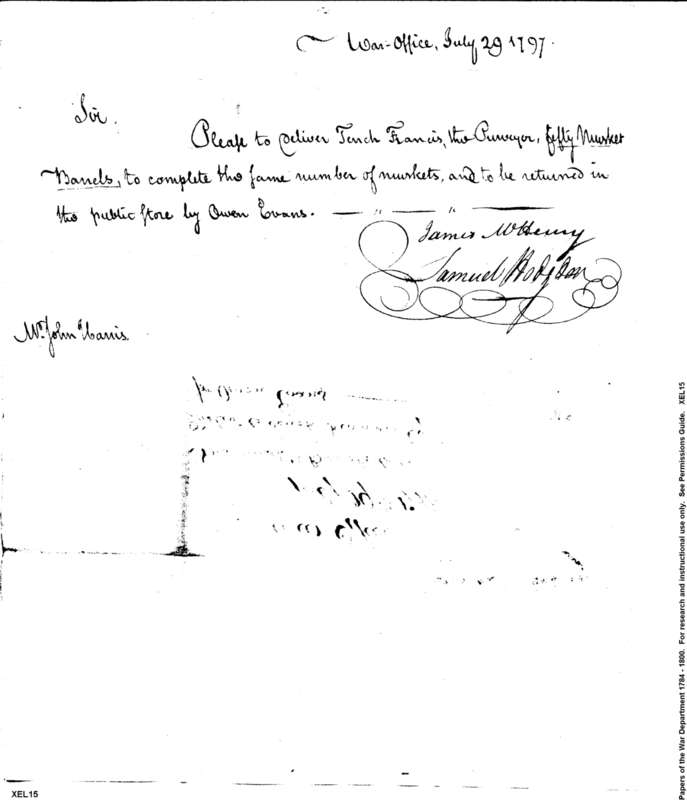 War-Office, July 29 1797.
Sir.
Please to deliver Tench Francis, the Purveyor, fifty Musket
Barrels, to complete the same number of muskets, and to be returned in
the public store by Owen Evans.
James McHenry
Samuel Hodgdon
Mr. John Harris.
for Owen Evans
XEL15
Papers of the War Department 1784 - 1800. For research and instructional use only. See Permissions Guide. XEL15